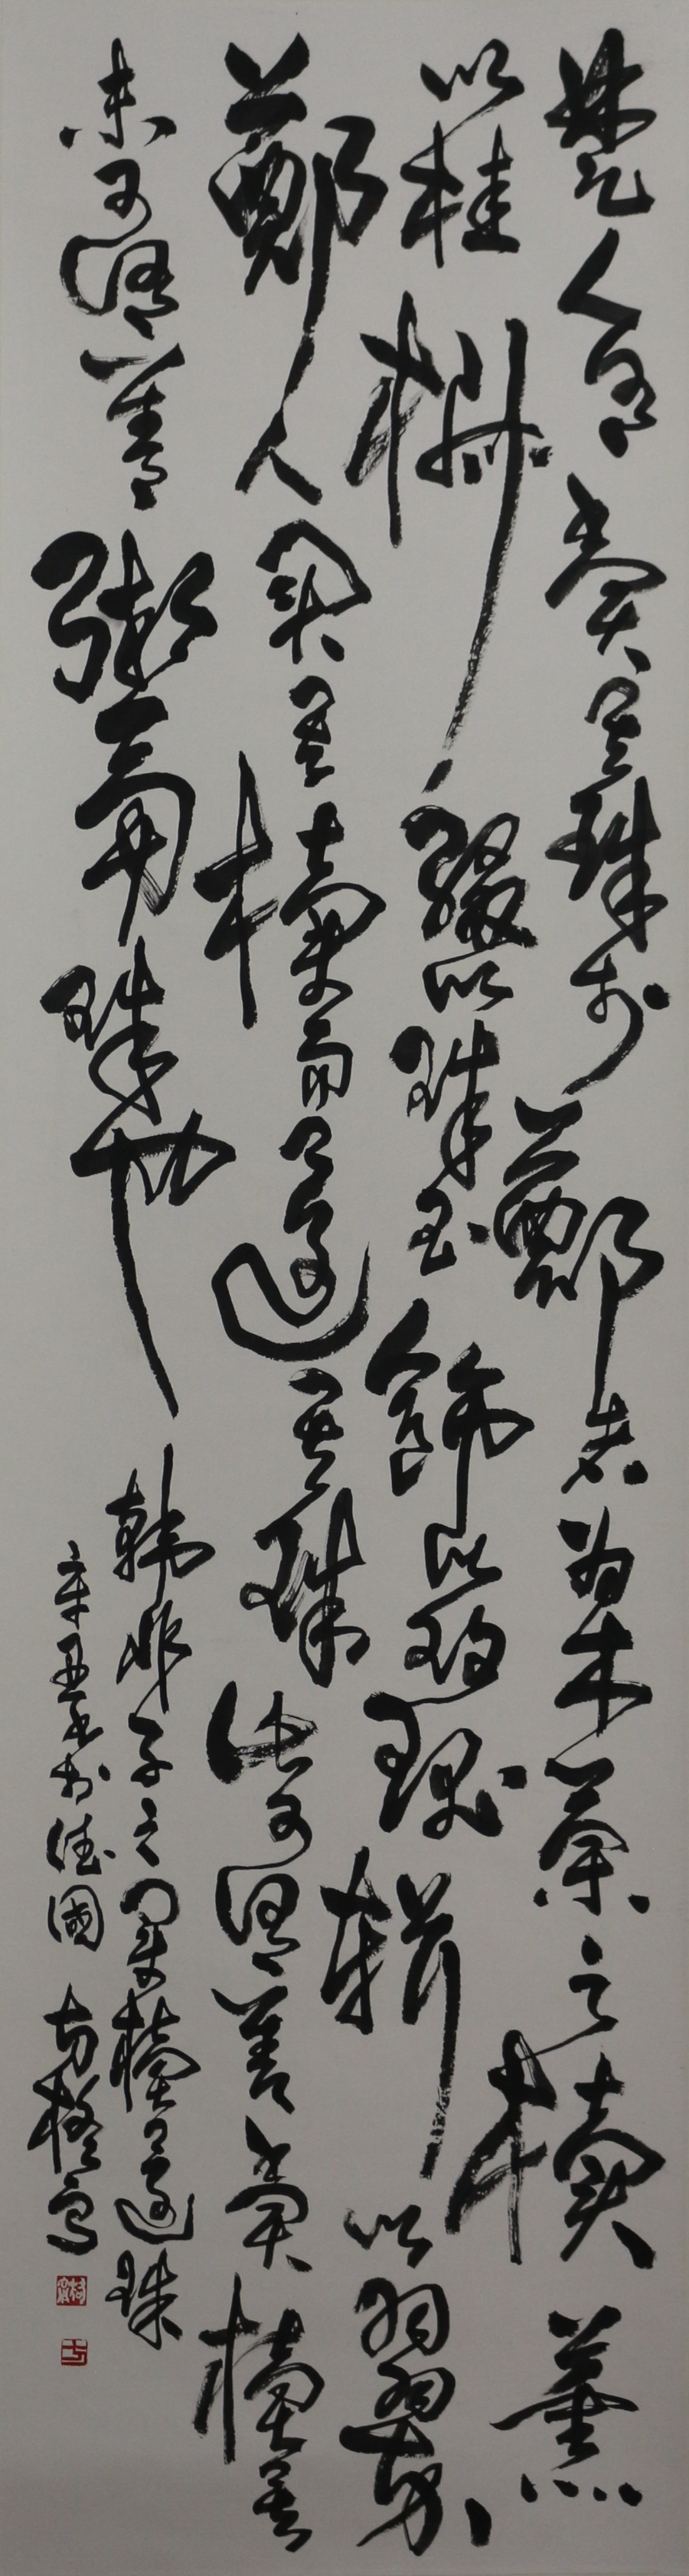 楚人有賣其珠於鄭者為木蘭之櫝薰
以桂椒綴以珠玉飾以玫瑰輯以羽翠
鄭人買其櫝而還其珠此可謂善賣櫝矣
未可謂善鬻珠也
韓非子之買櫝還珠
辛丑於德國 方寫